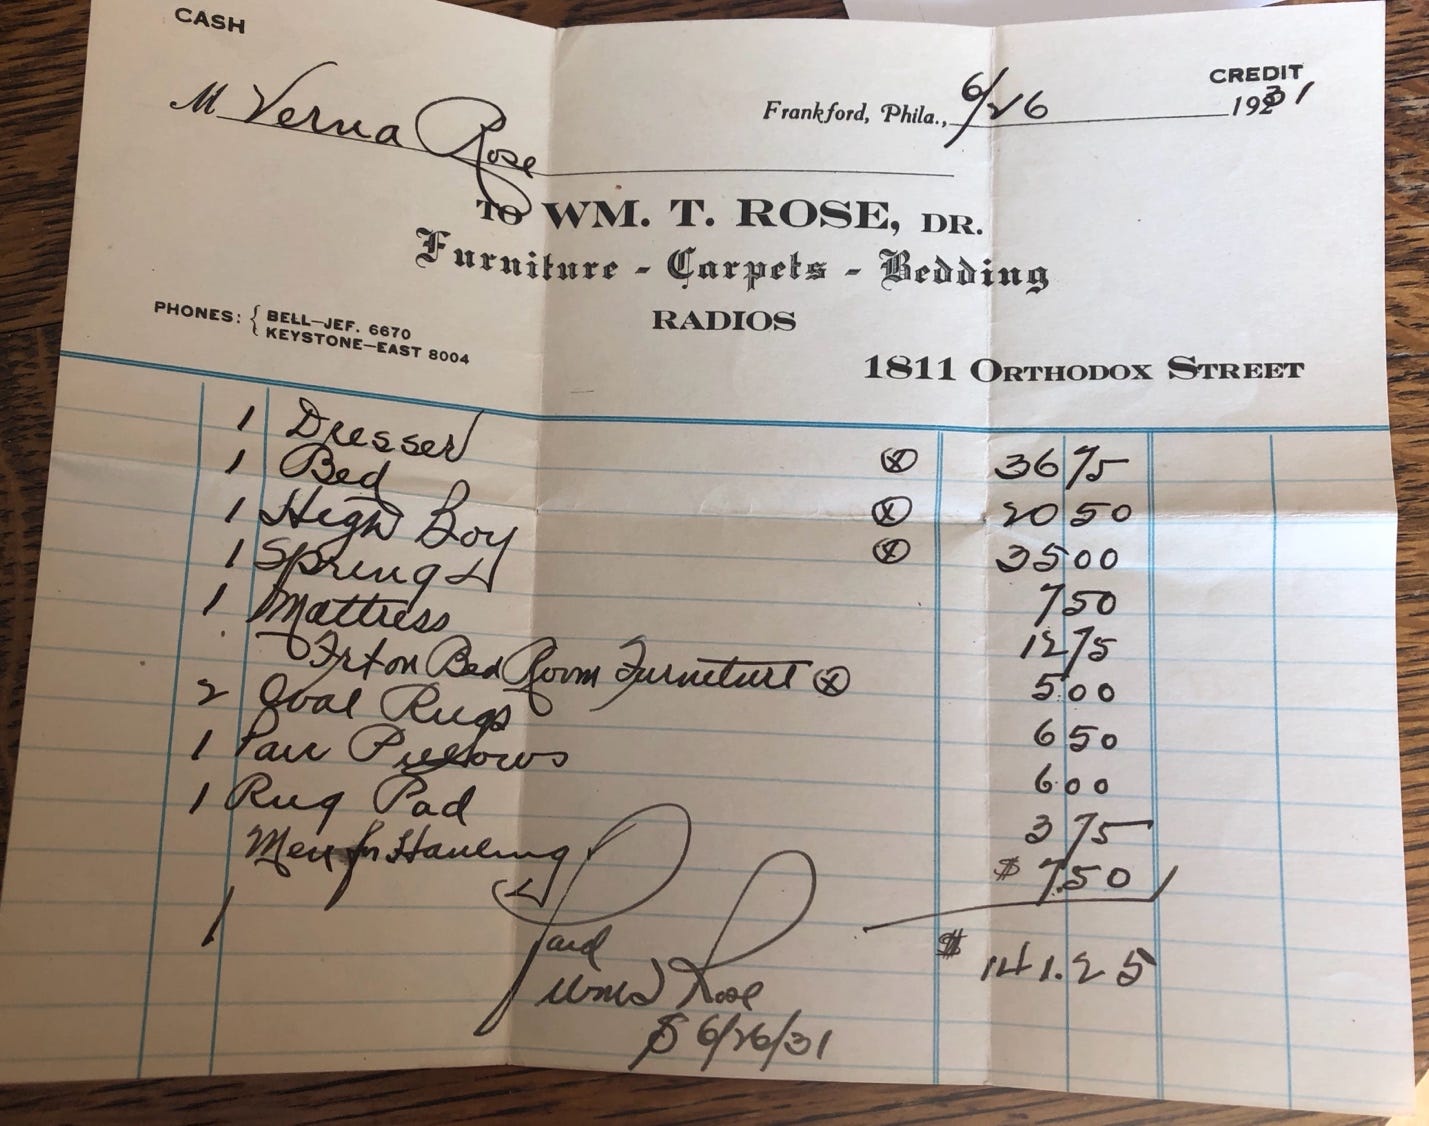 CASH
CREDIT
M Verna Rose
Frankford, Phila., 6/26 1931
TO WM. T. ROSE, DR.
Furniture - Carpets - Bedding
RADIOS
PHONES: { BELL—JEF. 6670
KEYSTONE—EAST 8004
1811 ORTHODOX STREET
1 Dresser ⓧ 36 75
1 Bed ⓧ 20 50
1 High Boy ⓧ 35 00
1 Spring 7 50
1 Mattress 12 75
Frt on Bed Room Furniture ⓧ 5 00
2 Oval Rugs 6 50
1 Pair Pillows 6 00
1 Rug Pad 3 75
Men for Hauling $ 7 50
1
$ 141.25
Paid
Rose
$ 6/26/31